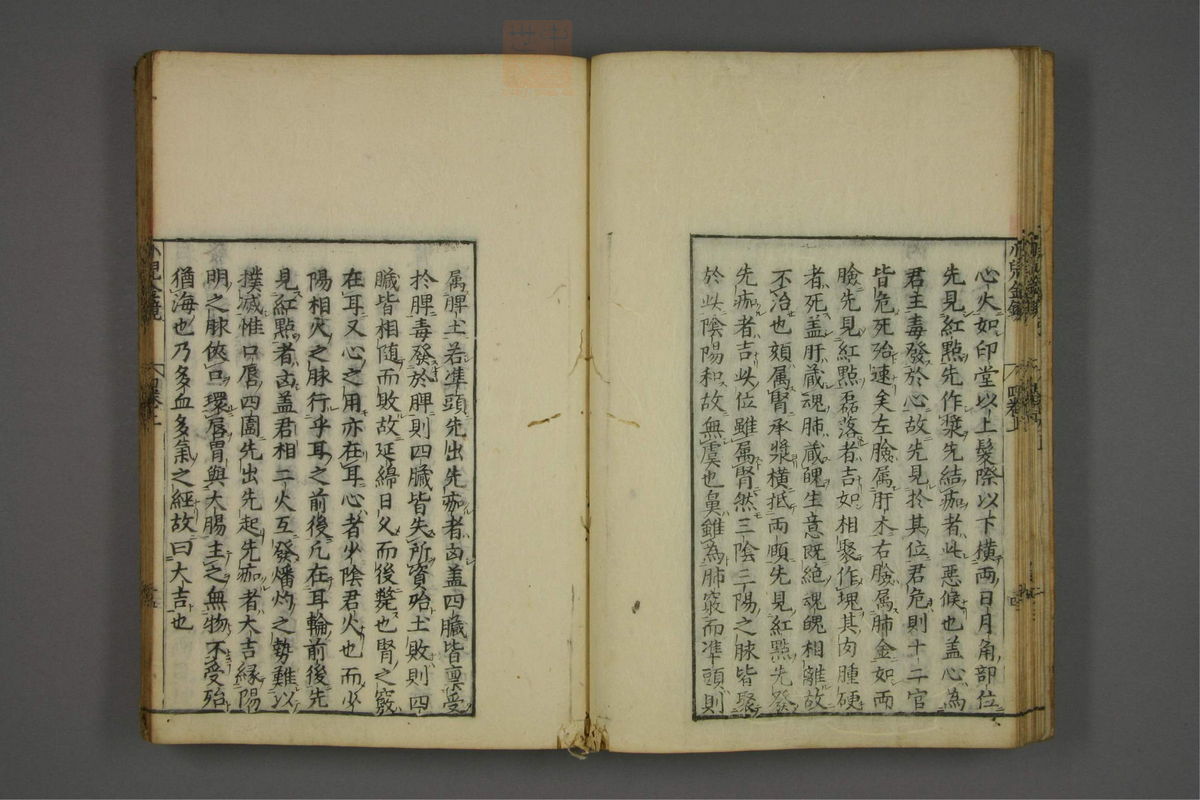 心火如印堂以上髮際以下横両日月角部位
先見紅點先作漿先結痂者此悪候也蓋心為
君主毒發於心故先見於其位君危則十二官
皆危死殆速矣左臉属肝木右臉属肺金如両
臉先見紅點磊落者吉如相聚作塊其肉腫硬
者死盖肝蔵魂肺蔵魄生意既絶魂魄相離故
不治也頦属腎承漿横抵両頤先見紅點先發
先痂者吉此位雖属腎然三陰三陽之脉皆聚
於此陰陽和故無虞也鼻雖為肺竅而準頭則
属脾土若準頭先出先痂者凶盖四臓皆禀受
於脾毒發於脾則四臓皆失所資殆土敗則四
臓皆相随而敗故延綿日久而後斃也腎之竅
在耳又心之用亦在耳心者少陰君火也而少
陽相火之脉行乎耳之前後凢在耳輪前後先
見紅點者凶盖君相二火互發燔灼之勢難以
撲滅惟口唇四圍先出先起先痂者大吉縁陽
明之脉俠口環唇胃與大腸主之無物不受殆
猶海也乃多血多氣之經故曰大吉也